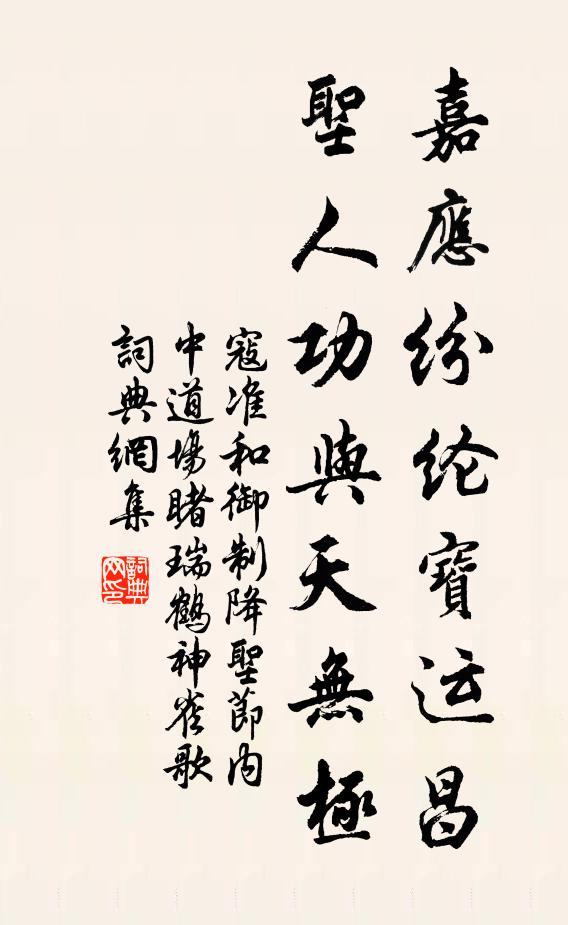 嘉應紛纶寶运昌
聖人功與天無極
寇准和御制降聖節内
中道場睹瑞鶴神雀歌
詞典網集
詞典
网印